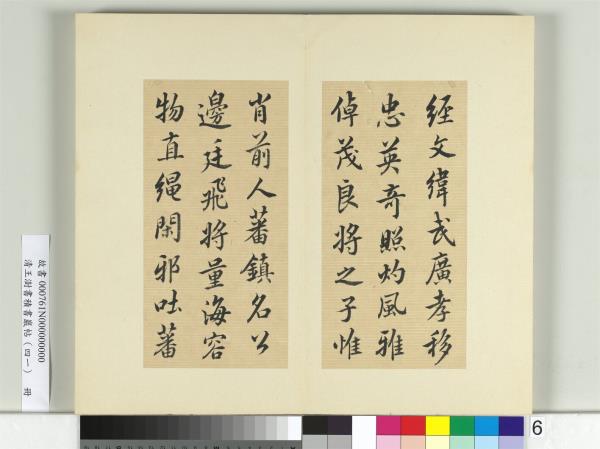 經文緯武廣孝移
忠英奇照灼風雅
倬茂良將之子惟
肖前人蕃鎮名公
邊廷飛將量海容
物直繩閑邪吐蕃
故書 000761N000000000
清王澍書積書巖帖（四一） 冊
6